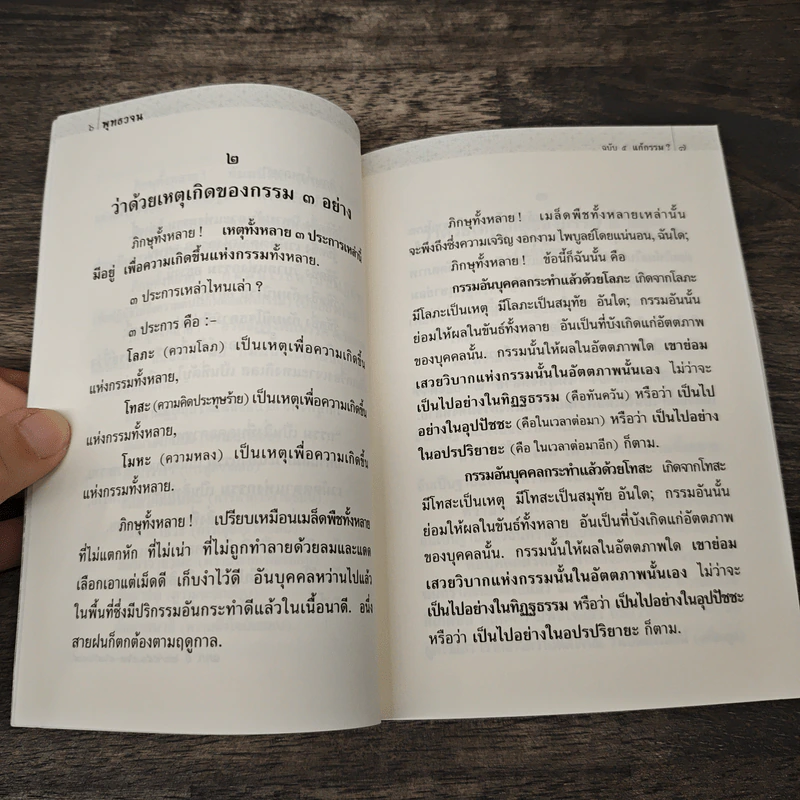 ๖ พุทธวจน
๒
ว่าด้วยเหตุเกิดของกรรม ๓ อย่าง
ภิกษุทั้งหลาย ! เหตุทั้งหลาย ๓ ประการเหล่านี้
มีอยู่ เพื่อความเกิดขึ้นแห่งกรรมทั้งหลาย.
๓ ประการเหล่าไหนเล่า ?
๓ ประการ คือ :-
โลภะ (ความโลภ) เป็นเหตุเพื่อความเกิดขึ้น
แห่งกรรมทั้งหลาย,
โทสะ (ความคิดประทุษร้าย) เป็นเหตุเพื่อความเกิดขึ้น
แห่งกรรมทั้งหลาย,
โมหะ (ความหลง) เป็นเหตุเพื่อความเกิดขึ้น
แห่งกรรมทั้งหลาย.
ภิกษุทั้งหลาย ! เปรียบเหมือนเมล็ดพืชทั้งหลาย
ที่ไม่แตกหัก ที่ไม่เน่า ที่ไม่ถูกทำลายด้วยลมและแดด
เลือกเอาแต่เม็ดดี เก็บงำไว้ดี อันบุคคลหว่านไปแล้ว
ในพื้นที่ซึ่งมีปริกรรมอันกระทำดีแล้วในเนื้อนาดี. อนึ่ง
สายฝนก็ตกต้องตามฤดูกาล.
ฉบับ ๕ แก้กรรม ? ๗
ภิกษุทั้งหลาย ! เมล็ดพืชทั้งหลายเหล่านั้น
จะพึงถึงซึ่งความเจริญ งอกงาม ไพบูลย์โดยแน่นอน, ฉันใด;
ภิกษุทั้งหลาย ! ข้อนี้ก็ฉันนั้น คือ
กรรมอันบุคคลกระทำแล้วด้วยโลภะ เกิดจากโลภะ
มีโลภะเป็นเหตุ มีโลภะเป็นสมุทัย อันใด; กรรมอันนั้น
ย่อมให้ผลในขันธ์ทั้งหลาย อันเป็นที่บังเกิดแก่อัตตภาพ
ของบุคคลนั้น. กรรมนั้นให้ผลในอัตตภาพใด เขาย่อม
เสวยวิบากแห่งกรรมนั้นในอัตตภาพนั้นเอง ไม่ว่าจะ
เป็นไปอย่างในทิฏฐธรรม (คือทันควัน) หรือว่า เป็นไป
อย่างในอุปปัชชะ (คือในเวลาต่อมา) หรือว่า เป็นไปอย่าง
ในอปรปริยายะ (คือ ในเวลาต่อมาอีก) ก็ตาม.
กรรมอันบุคคลกระทำแล้วด้วยโทสะ เกิดจากโทสะ
มีโทสะเป็นเหตุ มีโทสะเป็นสมุทัย อันใด; กรรมอันนั้น
ย่อมให้ผลในขันธ์ทั้งหลาย อันเป็นที่บังเกิดแก่อัตตภาพ
ของบุคคลนั้น. กรรมนั้นให้ผลในอัตตภาพใด เขาย่อม
เสวยวิบากแห่งกรรมนั้นในอัตตภาพนั้นเอง ไม่ว่าจะ
เป็นไปอย่างในทิฏฐธรรม หรือว่า เป็นไปอย่างในอุปปัชชะ
หรือว่า เป็นไปอย่างในอปรปริยายะ ก็ตาม.